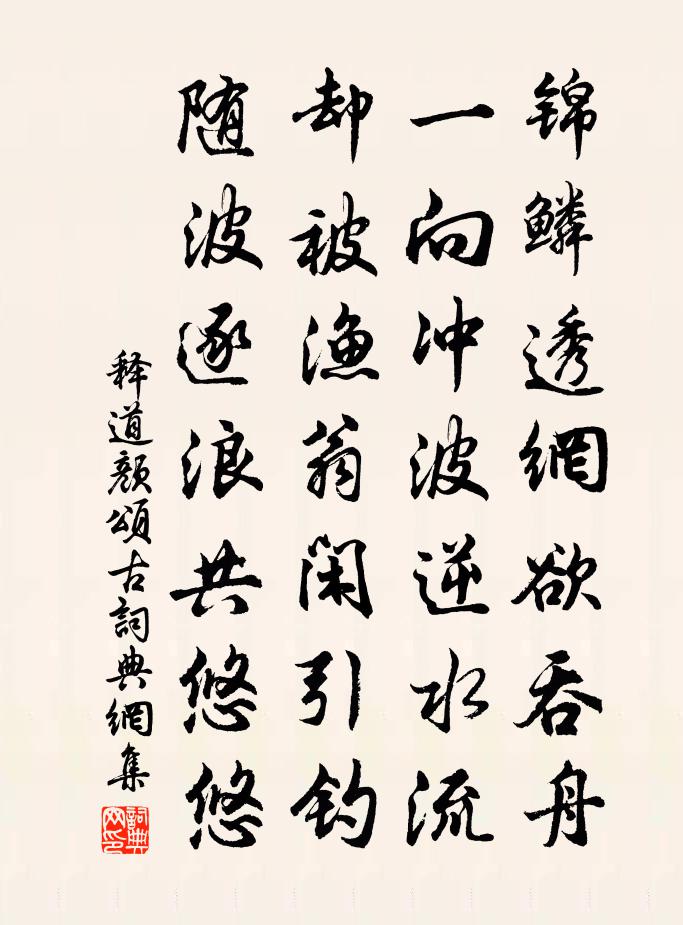 锦鳞透網欲吞舟
一向冲波逆水流
却被渔翁闲引钓
随波逐浪共悠悠
释道颜頌古詞典網集
詞典網印